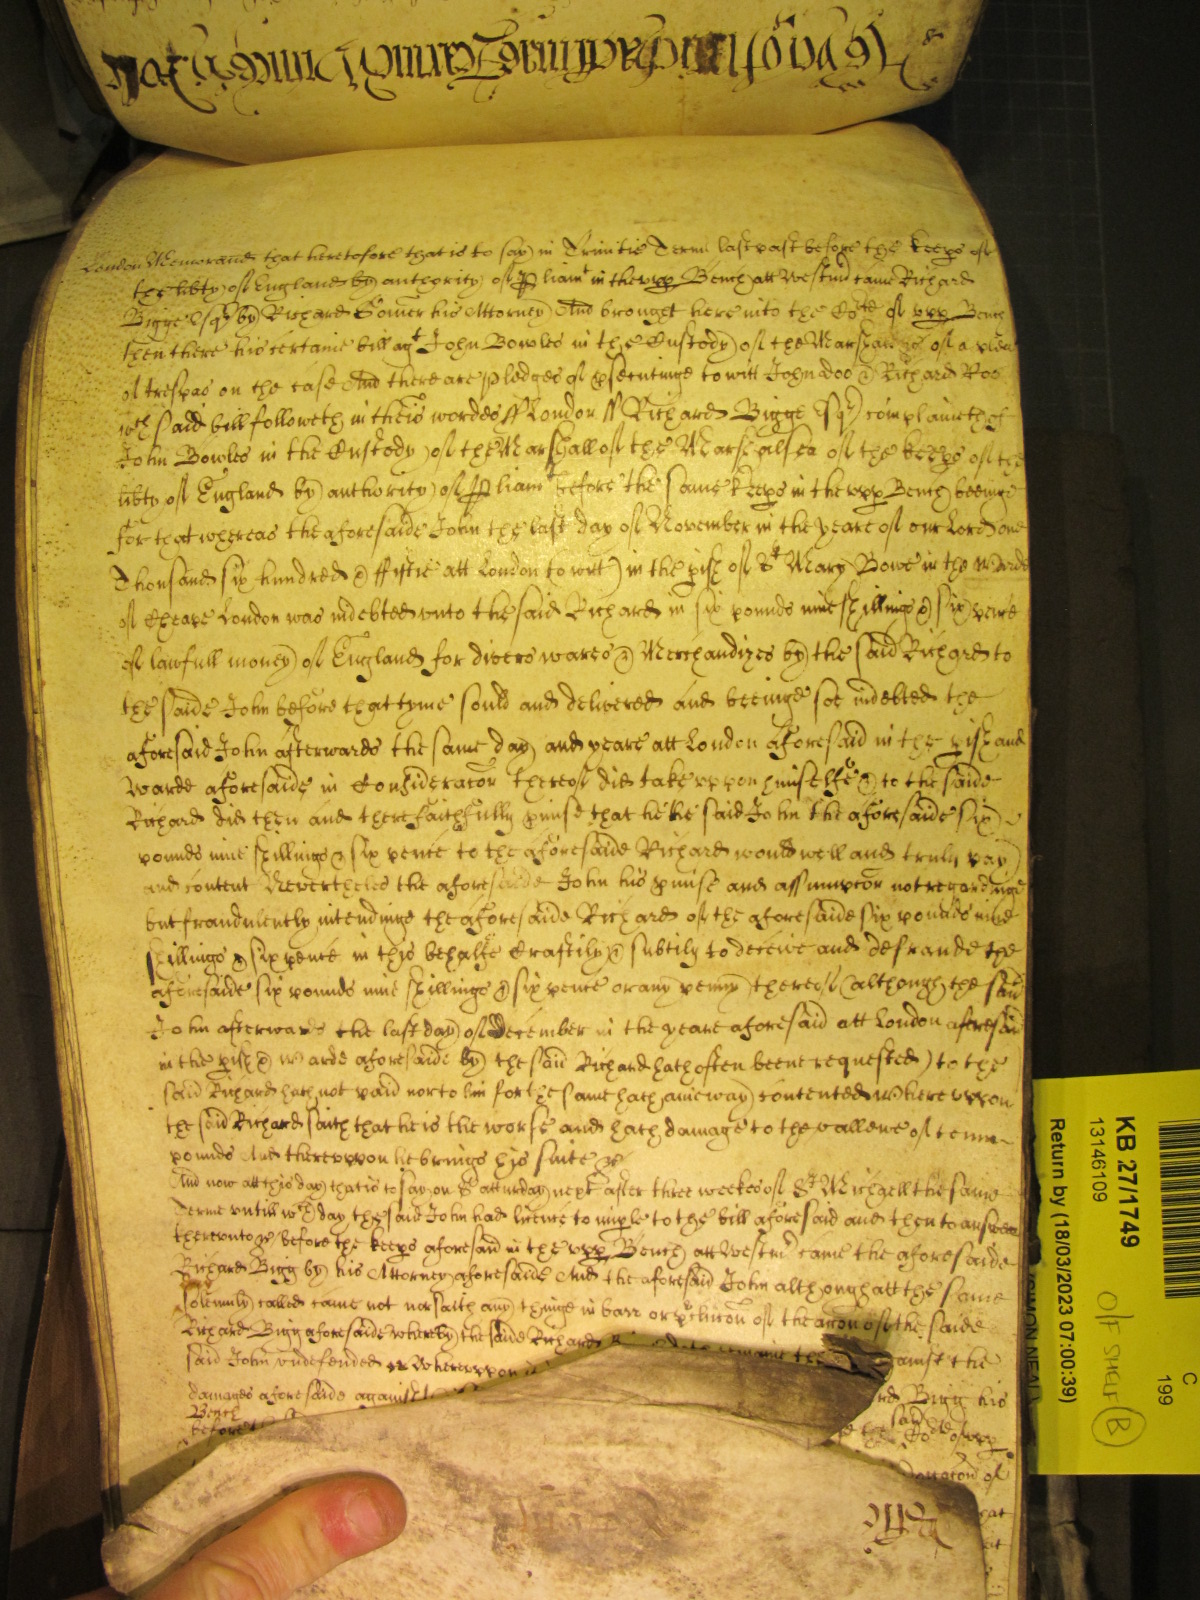 London Memorand that heretofore that is to say in Trinitie Terme last past before the keeps of
the libty of England by authority of Pliamt in the vpp Bench att Westmr came Richard
Bigge Esqr by Richard Comer his Attorney And brought here into the Corte of vpp Bench
then there his certaine bill agt John Bowles in the Custody of the Marshall &c of a plea
of trespas on the case And there are pledges of psecutinge to witt John doo & Richard Roo
wch said bill followeth in theis wordes ss London ss Richard Bigge Esqr complaineth of
John Bowles in the Custody of the Marshall of the Marshalsea of the keeps of the
libty of England by authority of Pliamt before the same keeps in the vpp Bench beeinge
for that whereas the aforesaide John the last day of November in the yeare of our Lord one
Thousand six hundred & ffiftie att London to witt in the pish of St Mary Bowe in the Warde
of Cheape London was indebted unto the said Richard in six pounds nine shillings & six pence
of lawfull money of England for divers wares & Merchandizes by the said Richard to
the saide John before that tyme sould and delivered and beeinge soe indebted the
aforesaid John afterwards the same day and yeare att London aforesaid in the pish and
warde aforesaide in Consideracon thereof did take uppon himselfe & to the saide
Richard did then and there faithfully pmise that he he said John the aforesaide six
pounds nine shillings & six pence to the aforesaide Richard would well and truly pay
and content Nevertheles the aforesaide John his pmise and assumpcon not regardinge
but fraudulently intendinge the aforesaide Richard of the aforesaide six pounds nine
shillings & six pence in this behalfe Craftily & subtily to deceive and defraude the
aforesaide six pounds nine shillings & six pence or any penny thereof (although the said
John afterwards the last day of December in the yeare aforesaid att London aforesaid
in the pish & warde aforesaide by the said Richard hath often beene requested) to the
said Richard hath not paid nor to him for the same hath anie way contented Whereuppon
the said Richard saith that he is the worse and hath damage to the vallewe of tenn
pounds And thereuppon he brings his suite &c
And now att this day that is to say on Satturday next after three weekes of St Michaell the same
Terme untill wch day the said John had licence to imple to the bill aforesaid and then to answer
thereunto &c before the keeps aforesaid in the vpp Bench att Westmr came the aforesaide
Richard Bigg by his Attorney aforesaide And the aforesaid John although att the same
day
solemnly called came not nor saith any thinge in barr or pclucon of the accon of the saide
Richard Bigg aforesaide whereby the saide Richard against the
said John undefended &c Whereuppon
damages aforesaide against rd Bigg his
Bench said
before the Corte of vpp
donacon of
KB 27/1749
13146109
Return by (18/03/2023 07:00:39)
SIMON NEAL
C
199
O/F SHELF B